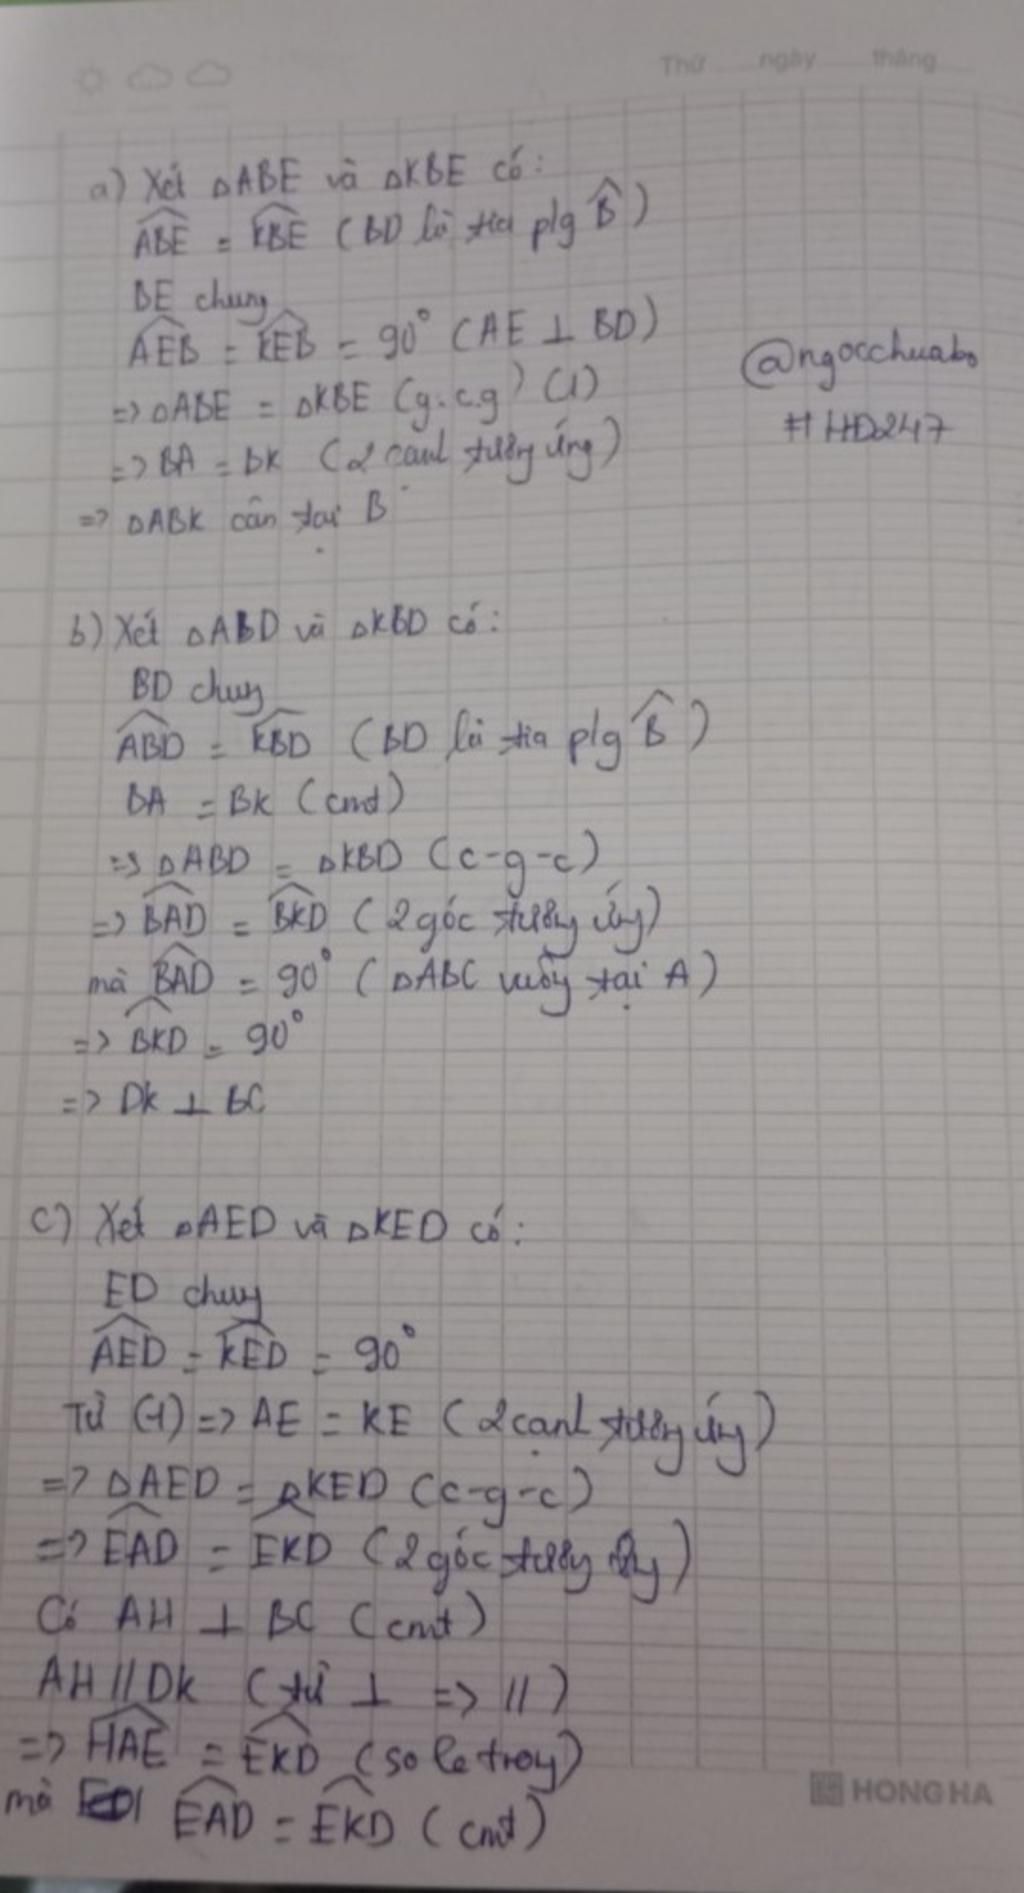 Thứ ngày tháng
a) Xét △ABE và △KBE có:
ABE = KBE (BD là tia p/g B)
BE chung
AEB = KEB = 90° (AE ⊥ BD)
=> △ABE = △KBE (g.c.g) (1)
=> BA = BK (2 cạnh tương ứng)
=> △ABK cân tại B
@ngocchuabo
#HD247
b) Xét △ABD và △KBD có:
BD chung
ABD = KBD (BD là tia p/g B)
BA = BK (cmt)
=> △ABD = △KBD (c-g-c)
=> BAD = BKD (2 góc tương ứng)
mà BAD = 90° (△ABC vuông tại A)
=> BKD = 90°
=> DK ⊥ BC
c) Xét △AED và △KED có:
ED chung
AED = KED = 90°
Từ (1) => AE = KE (2 cạnh tương ứng)
=> △AED = △KED (c-g-c)
=> EAD = EKD (2 góc tương ứng)
Có AH ⊥ BC (cmt)
AH // DK (từ ⊥ => //)
=> HAE = EKD (so le trong)
mà EAD = EKD (cmt)
HONG HA